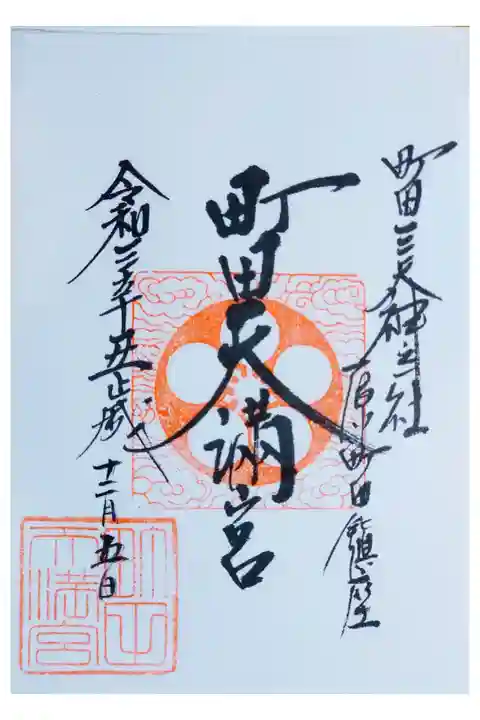 町田三天神
原町田鎮座
町田天満宮
令和三辛丑歳
十二月五日
町田
天満宮